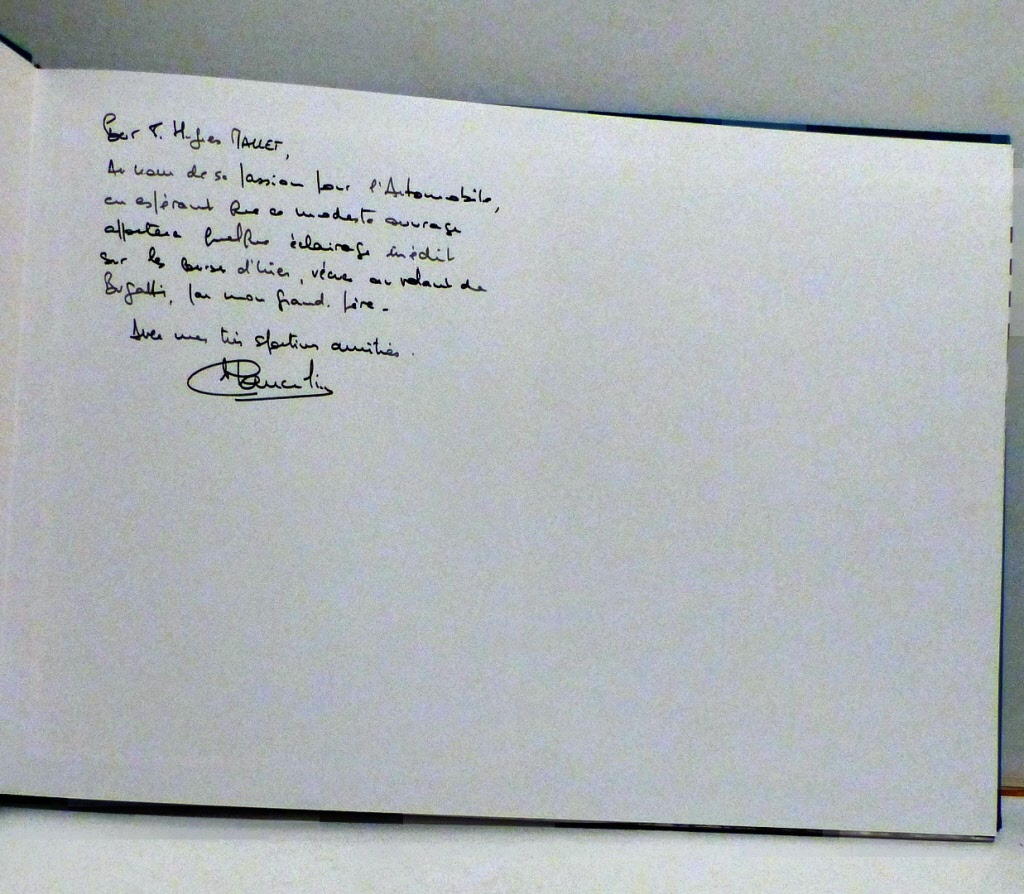 Pour M. Hugues MALLET,
Au nom de sa passion pour l'Automobile,
en espérant que ce modeste ouvrage
apportera quelque éclairage inédit
sur les courses d'hier, vécues au volant de
Bugatti, par mon grand-père.
Avec mes très sportives amitiés.